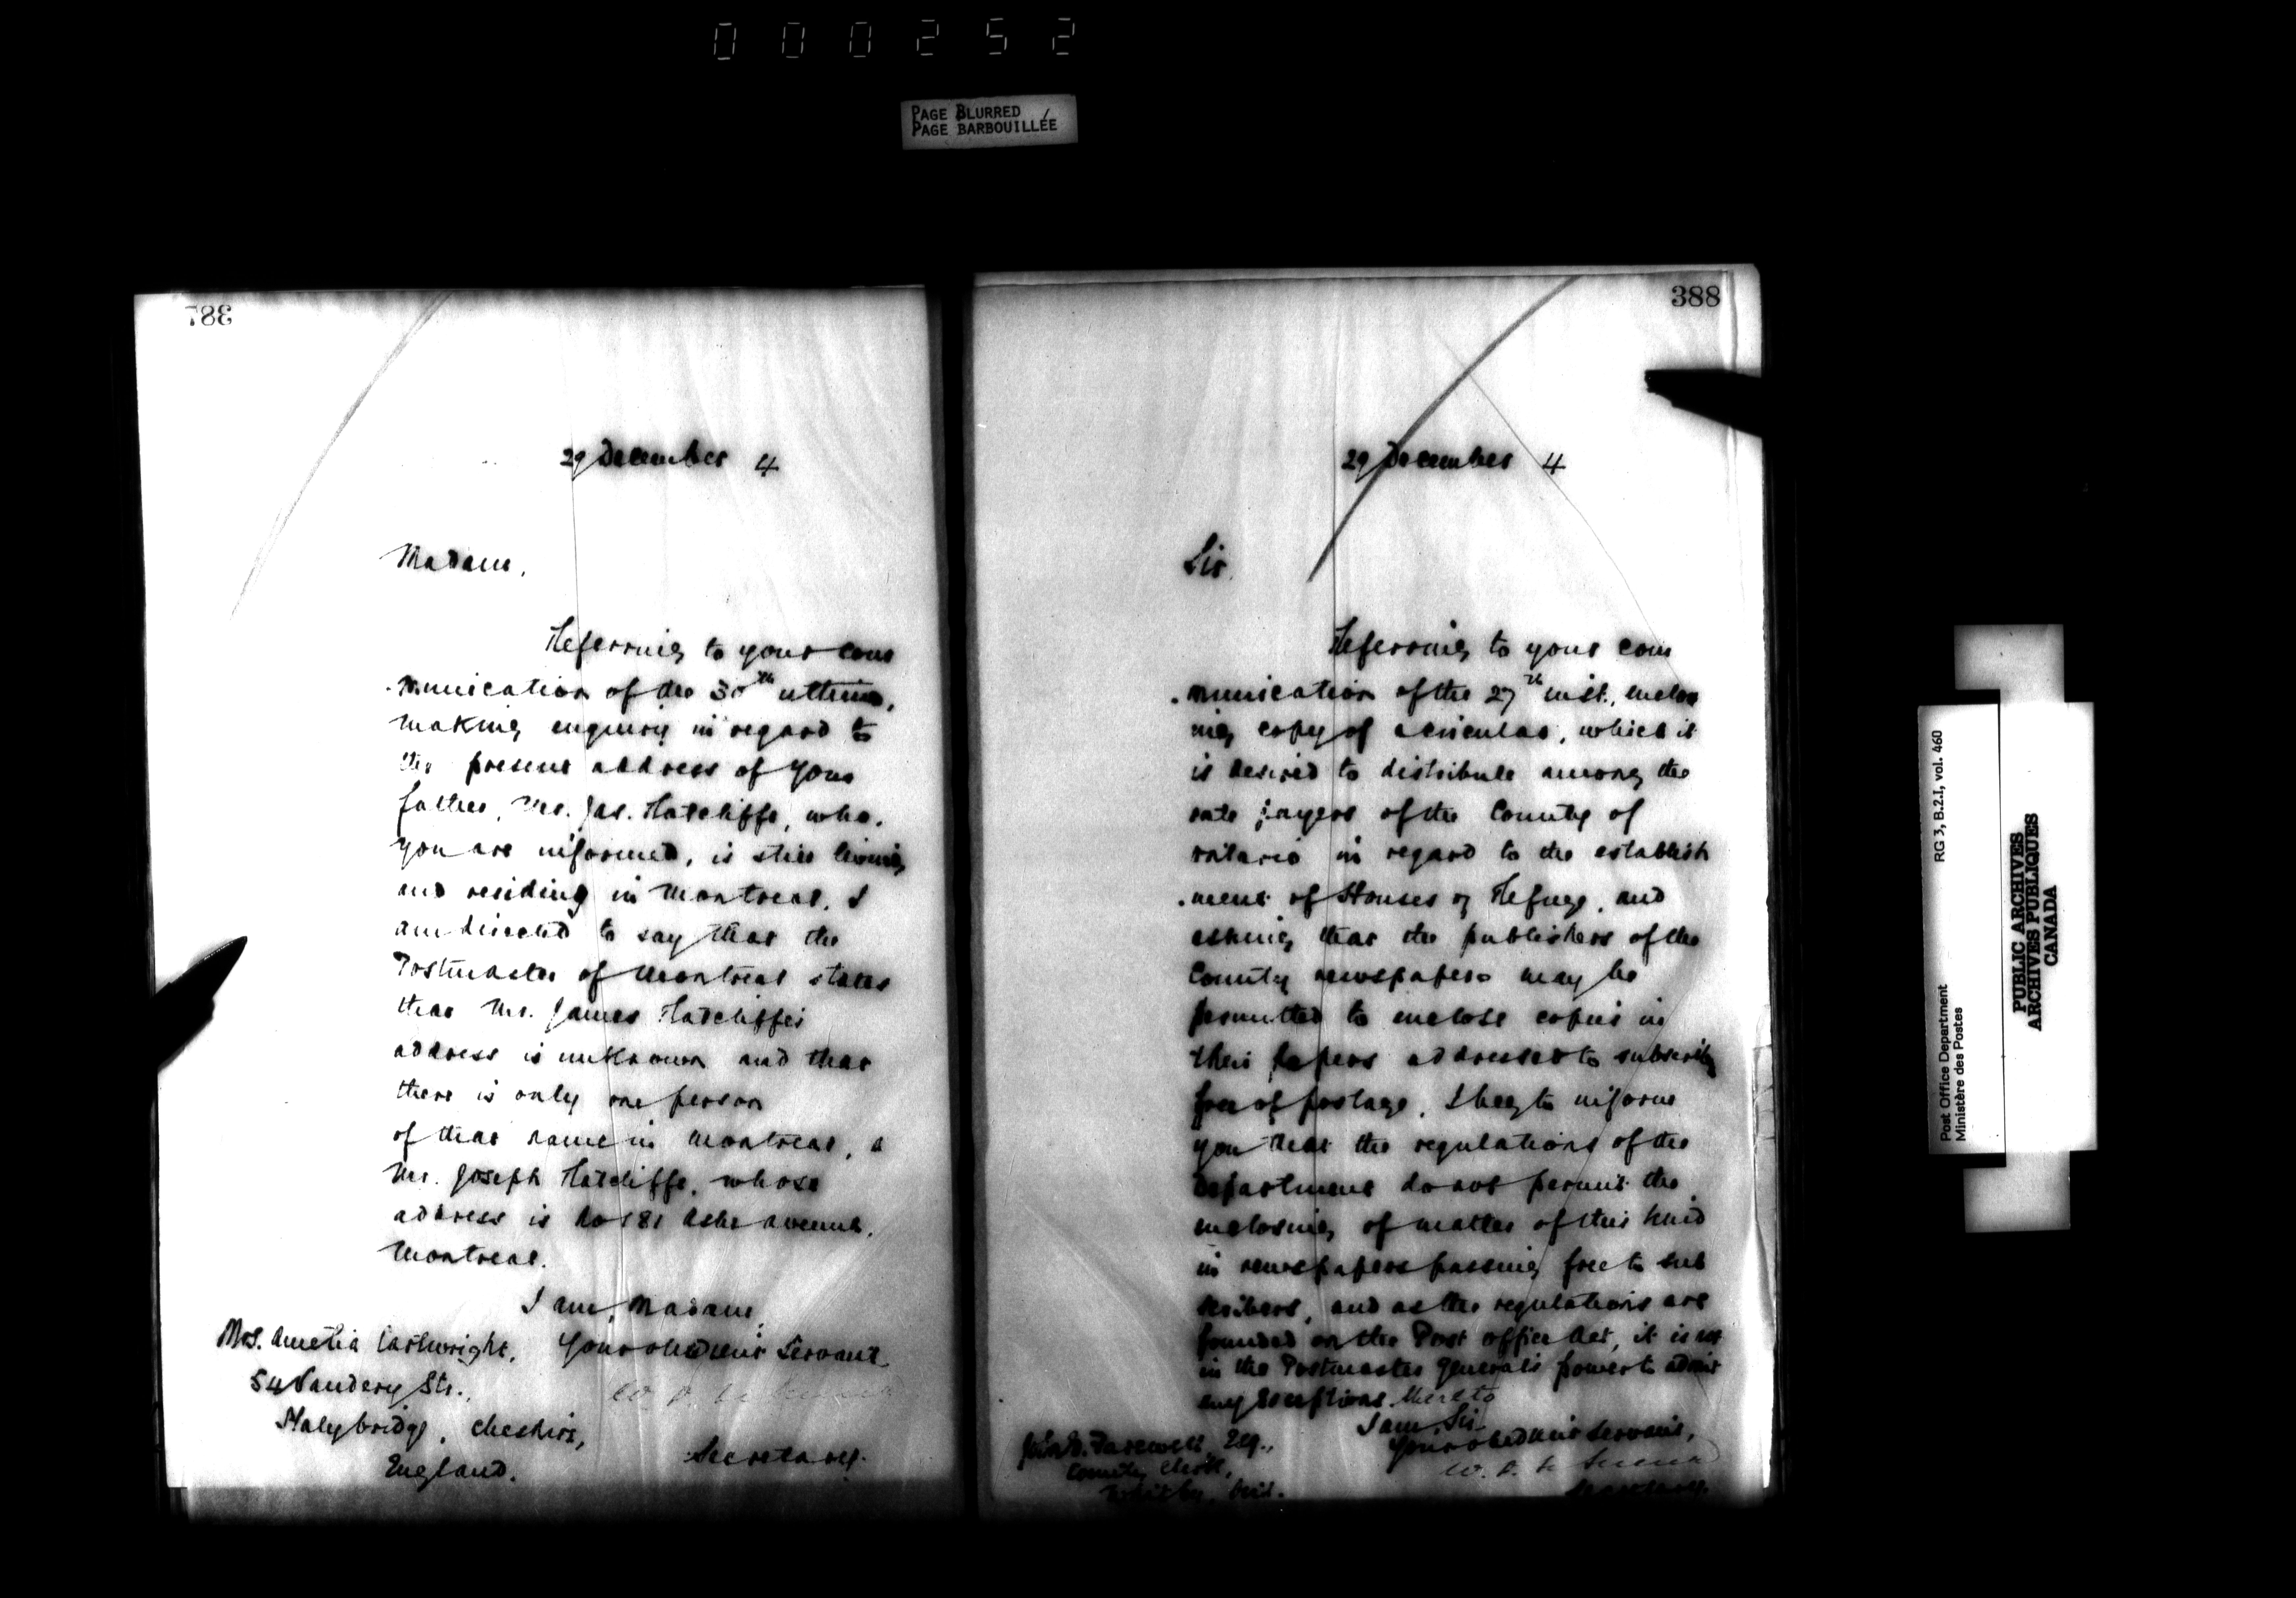 000252
PAGE BLURRED
PAGE BARBOUILLÉE
387
29 December 4
Madam,
Referring to your com
munication of the 30th ultimo,
making enquiry in regard to
the present address of your
father, Mr. Jas. Ratcliffe, who,
you are informed, is still living
and residing in Montreal, I
am directed to say that the
Postmaster of Montreal states
that Mr. James Ratcliffe's
address is unknown and that
there is only one person
of that name in Montreal, a
Mr. Joseph Ratcliffe, whose
address is No 181 Ashe avenue,
Montreal.
I am, Madam,
Your obedient Servant
Secretary.
Mrs. Amelia Cartwright,
54 Str.,
Stalybridge, Cheshire,
England.
388
29 December 4
Sir,
Referring to your com
munication of the 27th inst., enclos
ing copy of a circular, which it
is desired to distribute among the
rate payers of the County of
Ontario in regard to the establish
ment of Houses of Refuge, and
asking that the publishers of the
County newspapers may be
permitted to enclose copies in
their papers addressed to subscribers
free of postage, I beg to inform
you that the regulations of the
Department do not permit the
enclosing of matter of this kind
in newspapers passing free to sub
scribers, and as the regulations are
founded on the Post office Act, it is not
in the Postmaster General's power to admit
any exceptions thereto
I am, Sir
Your obedient Servant,
Secretary.
John E. Farewell, Esq.,
County Clerk,
Whitby, Ont.
Post Office Department
Ministère des Postes
RG 3, B.2.I, vol. 460
PUBLIC ARCHIVES
ARCHIVES PUBLIQUES
CANADA